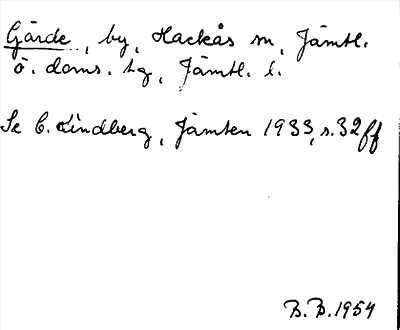 Gärde, by, Hackås sn, Jämtl.
ö. doms. tg, Jämtl. l.
Se C. Lindberg, Jämten 1933, s. 32 ff
B.B. 1954